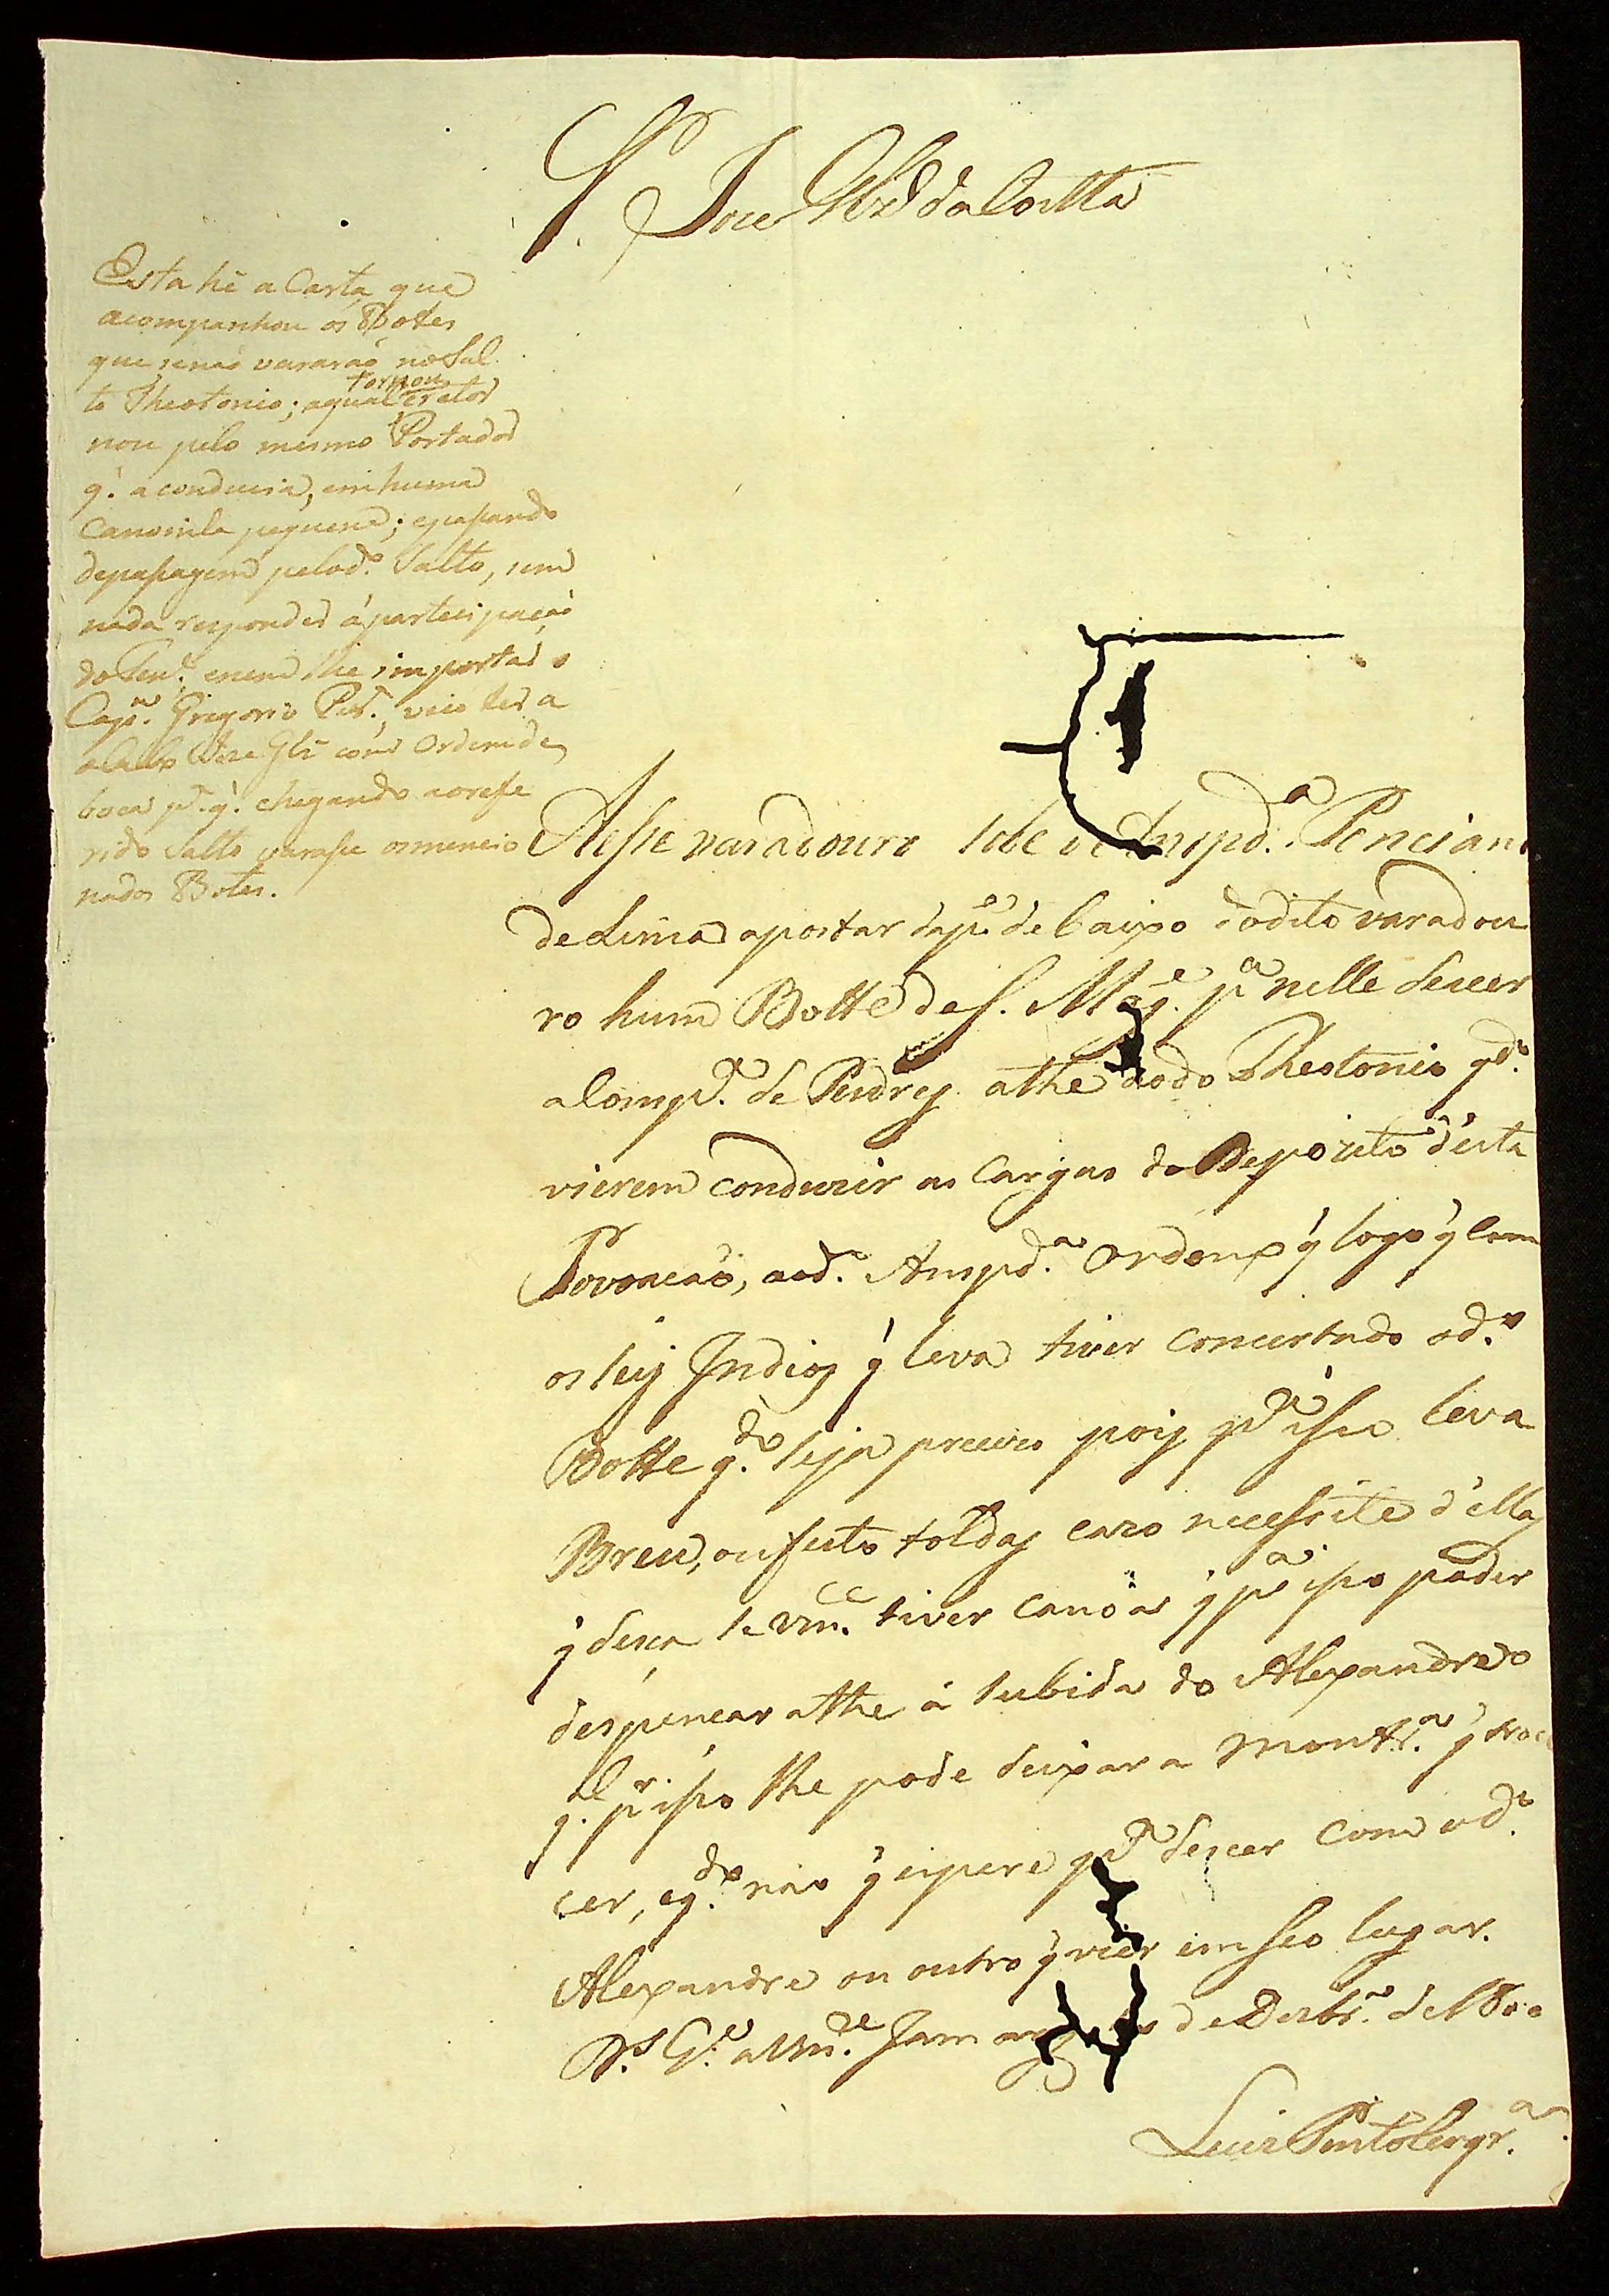 S.r Joze Glz̃ da Costta
Esta hé a Carta, que
acompanhou os Botes
que senaõ vararaõ no Sal
to Theotonio; aqual tornou
nou pelo mesmo Portador
q̃. a conduzia, em huma
Canoinha pequena; epassando
depassagem pelod.o Salto, sem
nada responder ápartecipaçaõ
do Ten.e enem lhe importar o
Cap.m Grigorio Per.a, veio ter a
Joze Glz̃ com Ordem de
boca p.a q̃. chegando aorefe
rido Salto varasse osmencio
nados Botes.
Aesse varadouro Ponciano
deLima aportar dap.te de baixo dodito varadou
ro hum Botte de S. Mag.e p.a nelle descer
aComp.a de Pedreş athe aodo Theotonio q.do
vierem conduzir as Cargas do Depozito d'esta
Povoacaõ, aod.o Anspd.a Ordeno q̃ logo q̃ com
os seiş Indioş q̃ leva tiver concertado od.o
Botte q.do seja precizo poiş p.a isso leva
Breu, oufeito toldaş cazo necessite d'ellaş
q̃ desça se Vm.ce tiver canôas q̃ p.a isso poder
despencar athe á subida do Alexandre o
q.al p.r isso lhe pode deixar a mont.a q̃
cer, eq.do naõ q̃ espere p.a descer com od.o
Alexandre ou outro q̃ vier em seo lugar.
D.s G.e aVm.ce de Dezbr.o de
Luiz Pinto Cerqr.a